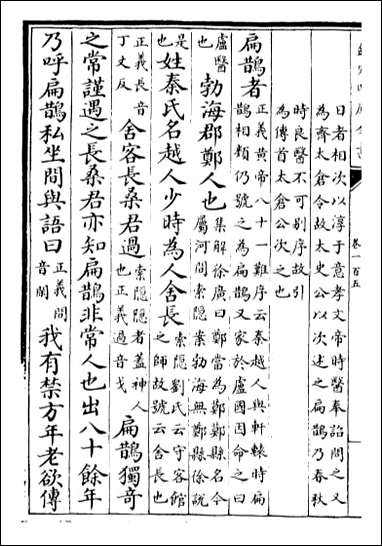 卷一百五
日者相次以淳于意孝文帝時醫奉詔問之又
為齊太倉令故太史公以次述之扁鵲乃春秋
時良醫不可別序故引
為傳首太倉公次之也
扁鵲者正義黃帝八十一難序云秦越人與軒轅時扁鵲相類仍號之為扁鵲又家於盧國因命之曰
盧醫也勃海郡鄭人也集解徐廣曰鄭當為鄚鄚縣名今屬河間索隱案勃海無鄭縣徐說
是也姓秦氏名越人少時為人舍長索隱劉氏云守客館之師故號云舍長也
正義長音丁丈反舍客長桑君過索隱隱者蓋神人也正義過音戈扁鵲獨奇
之常謹遇之長桑君亦知扁鵲非常人也出八十餘年
乃呼扁鵲私坐間與語曰正義間音閑我有禁方年老欲傳